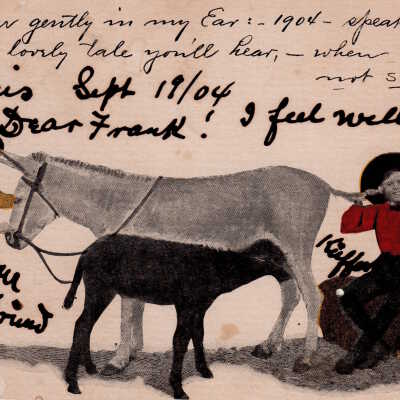 gently in my Ear:- 1904 - speak
lovely tale you'll hear, - when
not s
is Sept 19/04
Dear Frank! I feel well
Kaffee
friend